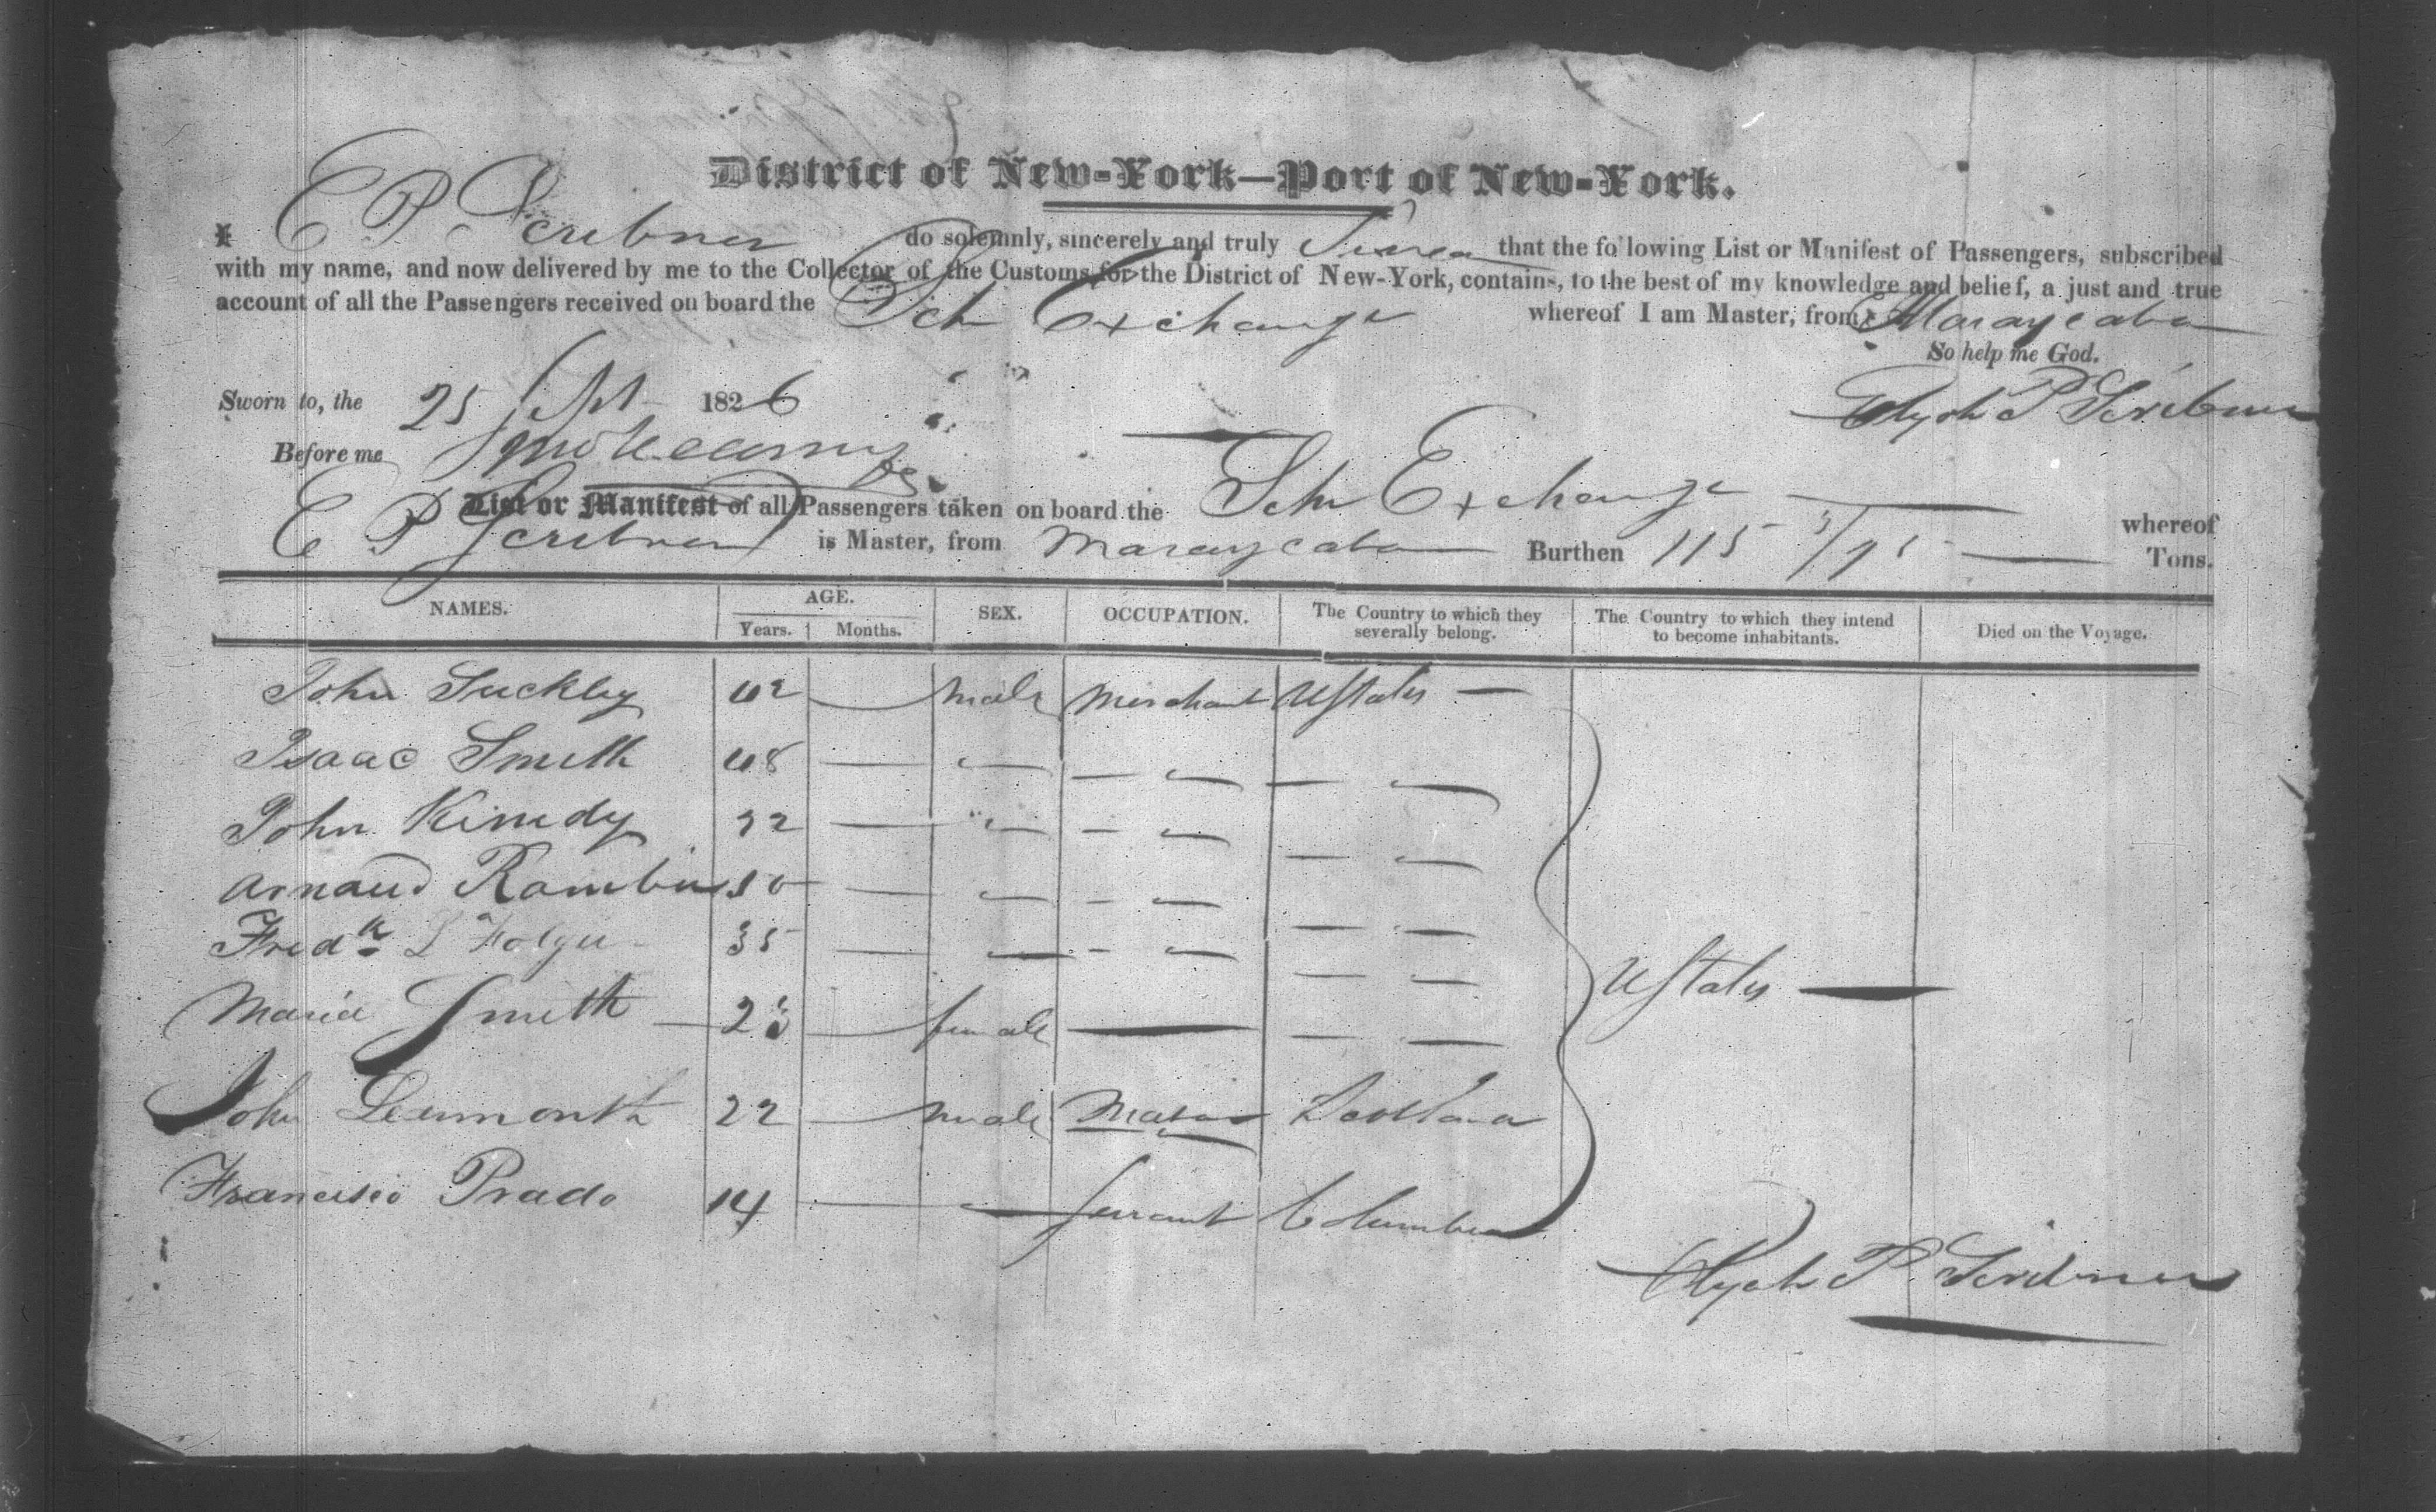 District of New-York—Port of New-York.
I E P Scribner do solemnly, sincerely and truly Swear that the following List or Manifest of Passengers, subscribed
with my name, and now delivered by me to the Collector of the Customs for the District of New-York, contains, to the best of my knowledge and belief, a just and true
account of all the Passengers received on board the Sch Exchange whereof I am Master, from Maraycabo
So help me God.
Sworn to, the 25 Sept 1826
P Scribner
Before me
List or Manifest of all Passengers taken on board the Schr Exchange whereof
E P Scribner is Master, from Maraycabo Burthen 115 Tons.
NAMES. AGE. SEX. OCCUPATION. The Country to which they severally belong. The Country to which they intend to become inhabitants. Died on the Voyage.
Years. Months.
John Suckley 42 — male Merchant UStates —
Isaac Smith 48 — — — — — —
John Kinedy 32 — " — — — — —
Arnaud 50 — — — — — —
Fredk L Folger 35 — — — — — —
Maria Smith — 23 — female — — —
UStates —
John Learmonth 22 — male Mason Scotland
Francisco Prado 14 — — servant Columbia
P Scribner